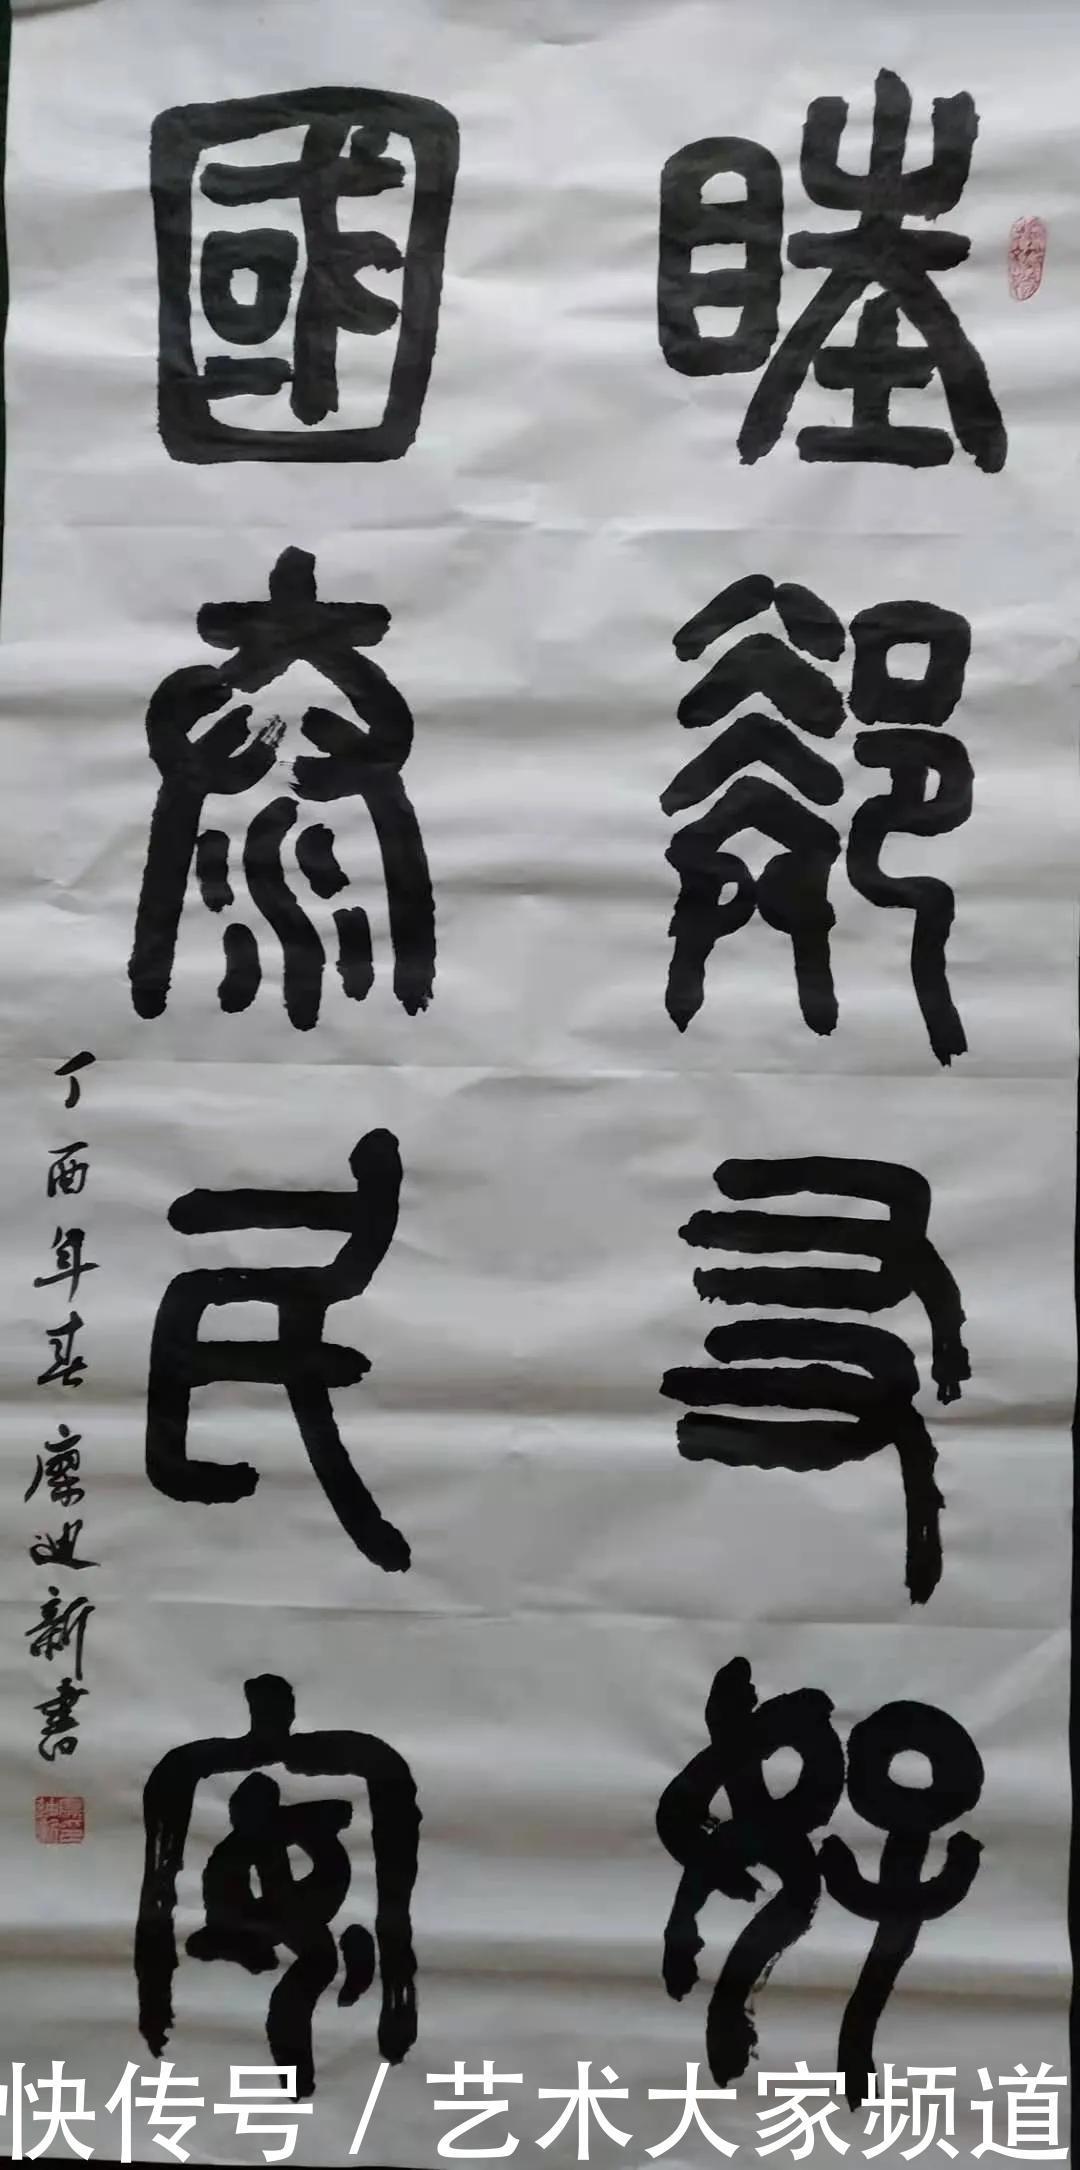 睦鄰友好
國泰民安
丁酉年春廖迪新書
快传号/艺术大家频道